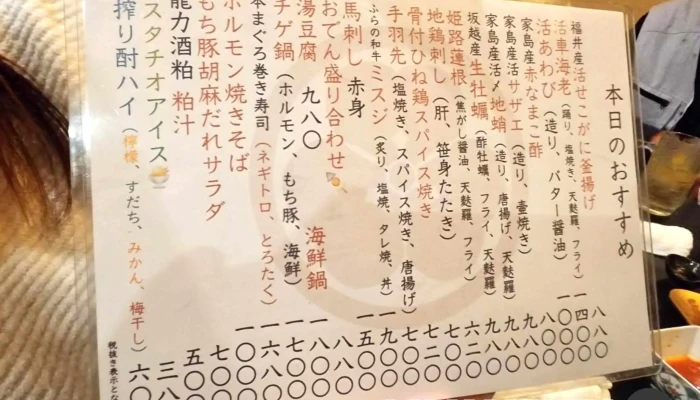 本日のおすすめ
福井産活せこがに釜揚げ 一八八〇
活車海老（踊り、塩焼き、天麩羅、フライ） 一四〇〇
活あわび（造り、バター醤油） 一八〇〇
家島産赤なまこ酢 八八〇
家島産活サザエ（造り、壷焼き） 九八〇
家島産活〆地蛸（造り、唐揚げ、天麩羅） 九八〇
坂越産生牡蠣（酢牡蠣、フライ、天麩羅） 九八〇
姫路蓮根（焦がし醤油、天麩羅、フライ） 六二〇
地鶏刺し（肝、笹身たたき） 七〇〇
骨付ひね鶏スパイス焼き 七二〇
手羽先（塩焼き、スパイス焼き、唐揚げ） 七〇〇
ふらの和牛ミスジ（炙り、塩焼、タレ焼、丼） 一九〇〇
馬刺し 赤身 一五〇〇
おでん盛り合わせ 八八〇
湯豆腐 九八〇 海鮮鍋 一八〇〇
チゲ鍋（ホルモン、もち豚、海鮮） 一七〇〇
本まぐろ巻き寿司（ネギトロ、とろたく） 一六八〇
ホルモン焼きそば 一〇〇〇
もち豚胡麻だれサラダ 七〇〇
龍力酒粕 粕汁 五〇〇
スタチオアイス 三八
搾り酎ハイ（檸檬、すだち、みかん、梅干し） 六〇
税抜き表示とな